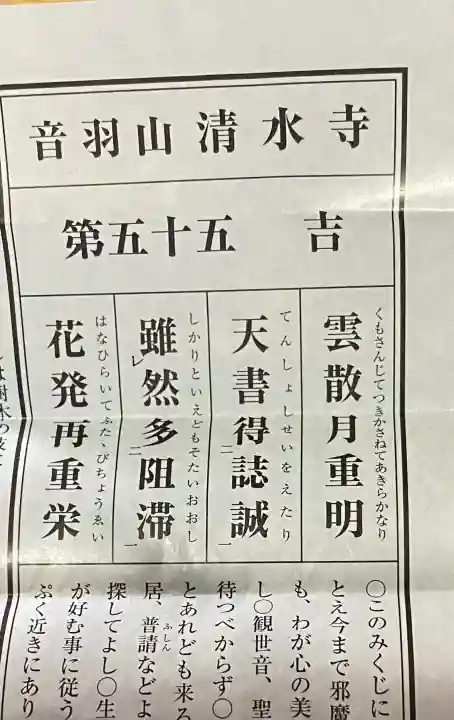 音羽山清水寺
第五十五 吉
雲散月重明
くもさんじてつきかさねてあきらかなり
天書得二誌誠一
てんしょしせいをえたり
雖レ然多二阻滞一
しかりといえどもそたいおおし
花発再重栄
はなひらいてふたゝびちょうゑい
〇このみくじに
とえ今まで邪魔
も、わが心の美
し〇観世音、聖
待つべからず〇
とあれども来る
居、普請などよ
ふしん
探してよし〇生
が好む事に従う
ぷく近きにあり